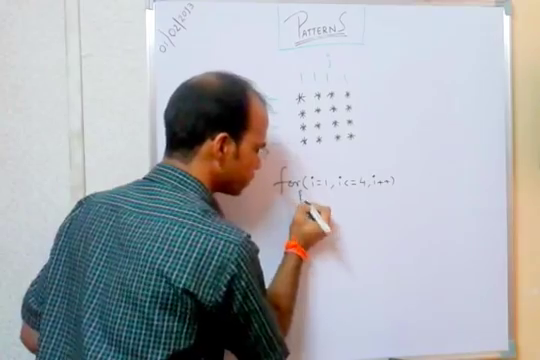 01/02/2013
PATTERNS
i
1 1 1 1
* * * *
* * * *
* * * *
* * * *
for(i=1, i<=4, i++)